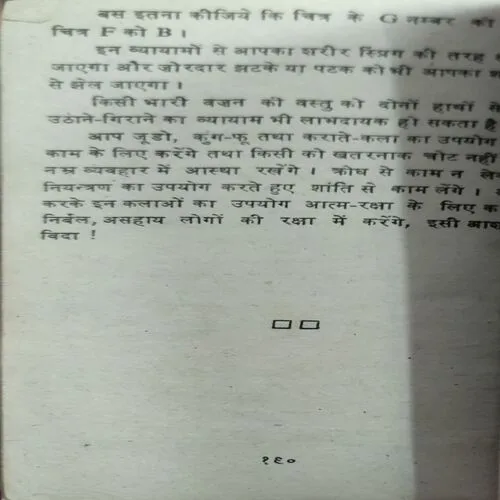 बस इतना कीजिये कि चित्र के G नम्बर को
चित्र F को B ।
इन व्यायामों से आपका शरीर स्प्रिंग की तरह
जाएगा और ज़ोरदार झटके या पटक को भी आपका
से झेल जाएगा ।
किसी भारी वज़न की वस्तु को दोनों हाथों
उठाने-गिराने का व्यायाम भी लाभदायक हो सकता है
आप जूडो, कुंग-फू तथा कराते-कला का उपयोग
काम के लिए करेंगे तथा किसी को खतरनाक चोट नहीं
नम्र व्यवहार में आस्था रखेंगे । क्रोध से काम न
नियन्त्रण का उपयोग करते हुए शांति से काम लेंगे ।
करके इन कलाओं का उपयोग आत्म-रक्षा के लिए
निर्बल, असहाय लोगों की रक्षा में करेंगे, इसी
विदा !
१९०